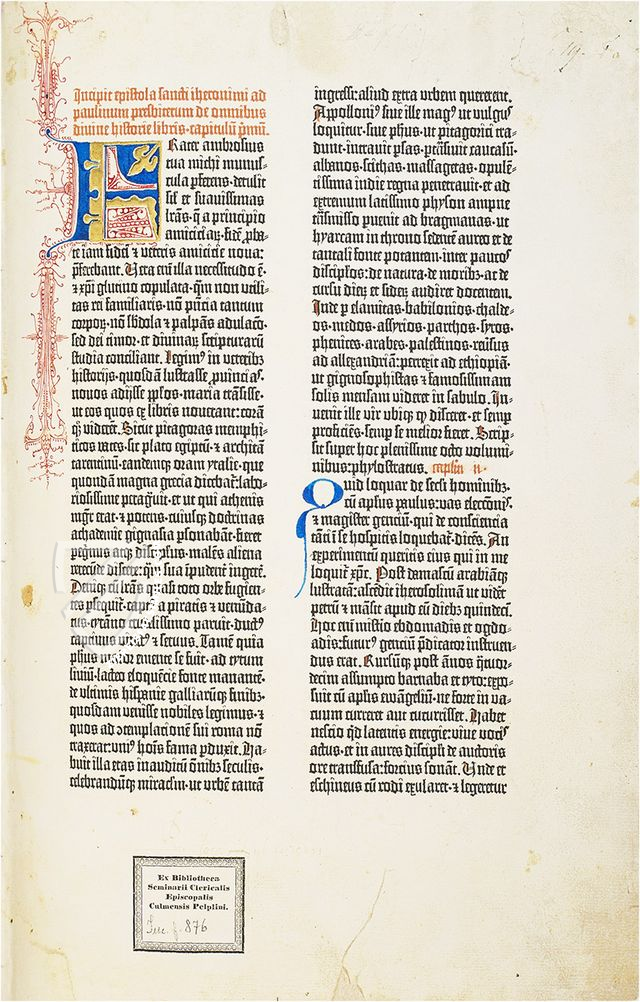 Incipit epistola sancti iheronimi ad
paulinum presbiterum de omnibus
divine historie libris. capitulū pmū.
Frater ambrosius
tua michi munus-
cula pferens. detulit
sil et suavissimas
lrās. q̄ a principio
amiciciar̄. fidē pba-
te iam fidei ⁊ veteris amicicie nova:
pferebant. Vera enī illa necessitudo ē.
⁊ xp̄i glutino copulata. qm̄ non utili-
tas rei familiaris. nō pn̄cia tantum
corpor̄. nō sb̄dola ⁊ palpās adulacō.
sed dei timor. et divinar̄ scripturarū
studia conciliant. Legim⁹ in veterib⁊
historijs. quosdā lustrasse puincias.
novos adijsse pplos. maria trāsisse.
ut eos quos ex libris noverant: corā
q̄ viderēt. Sicut pitagoras memphi-
ticos vates. sic plato egiptū. ⁊ architā
tarentinū. eandemq̄ oram ytalie. que
quondā magna grecia dicebat̄: labo-
riosissime peragvit. et ut qui athenis
mgr̄ erat. ⁊ potens. cuiusq̄ doctrinas
achademie gignasia psonabāt. fieret
pegrinus atq̄ discipulus. malēs aliena
verecūde discere: q̄m sua īpudent̄ ingerē.
Deniq̄ cū lrās quasi toto orbe fugien-
tes pseqitur̄. capt⁹ a piratis ⁊ venūda-
tus. tyrāno crudelissimo paruit. duct⁹
captivus vinct⁹ ⁊ servus. Tamē quia
phus maior emente se fuit. ad tytum
liviū. lacteo eloquēcie fonte manantē.
de ultimis hispanie galliarūq̄ finib⁊.
quosdam venisse nobiles legimus. ⁊
quos ad ɔtemplacionē sui roma nō
traxerat: uni⁹ hoīs fama pduxit. Ha-
buit illa etas inauditū ōnib⁊ seculis.
celebrandūq̄ miraclm̄. ut urbē tantā
ingressi: aliud extra urbem quererent.
Apolloni⁹ sive ille mag⁹ ut vulgus
loquitur. sive phus. ut pitagorici tra-
dunt. intravit psas. ptrāsivit caucasū.
albanos. scithas. massagetas. opulē-
tissima indie regna penetravit. et ad
extremum latissimo physon ampne
trāsmisso puenit ad bragmanas. ut
hyarcam in throno sedentē aureo et de
tantali fonte potantem. inter paucos
discipl̄os: de natura. de morib⁊. ac de
cursu dier̄ et sider̄ audiret docentem.
Inde p elamitas. babilonios. chalde-
os. medos. assyrios. parthos. syros.
phenices. arabes. palestinos. reversus
ad allexandriā: perrexit ad ethiopiā.
ut gignosophistas ⁊ famosissimam
solis mensam videret in sabulo. In-
venit ille vir ubiq̄ qd̄ disceret. et semp
proficiēs. semp se melior fieret. Scrip-
sit super hoc plenissime octo volumi-
nibus: phylostratus. caplm̄ ii.
Quid loquar de secli hominib⁊.
cū aplus paulus: vas electōnis.
⁊ magister gentiū. qui de consciencia
tanti ī se hospicis loquebat̄. dicēs. An
experimentū queritis eius qui in me
loquit̄ xp̄c. Post damascū arabiāq̄
lustratā: ascēdit iherosolimā ut videt̄
petrū ⁊ māsit apud eū dieb⁊ quindeci.
Hoc enī misterio ebdomadis et ogdo-
adis: futur⁹ gentiū pdicator instruen-
dus erat. Rursūq̄ post ānos q̄tuor-
decim assumpto barnaba et tyto: expo-
suit cū aplis ewāgeliū. ne forte in va-
cuum curreret aut cucurrisset. Habet
nescio q̄d latentis energie: vive vocis
actus. et in aures discipli de auctoris
ore transfusa: forcius sonat. Unde et
eschineus cū rodi exularet. ⁊ legeretur
Ex Bibliotheca
Seminarii Clericalis
Episcopalis
Culmensis Pelplini.
876